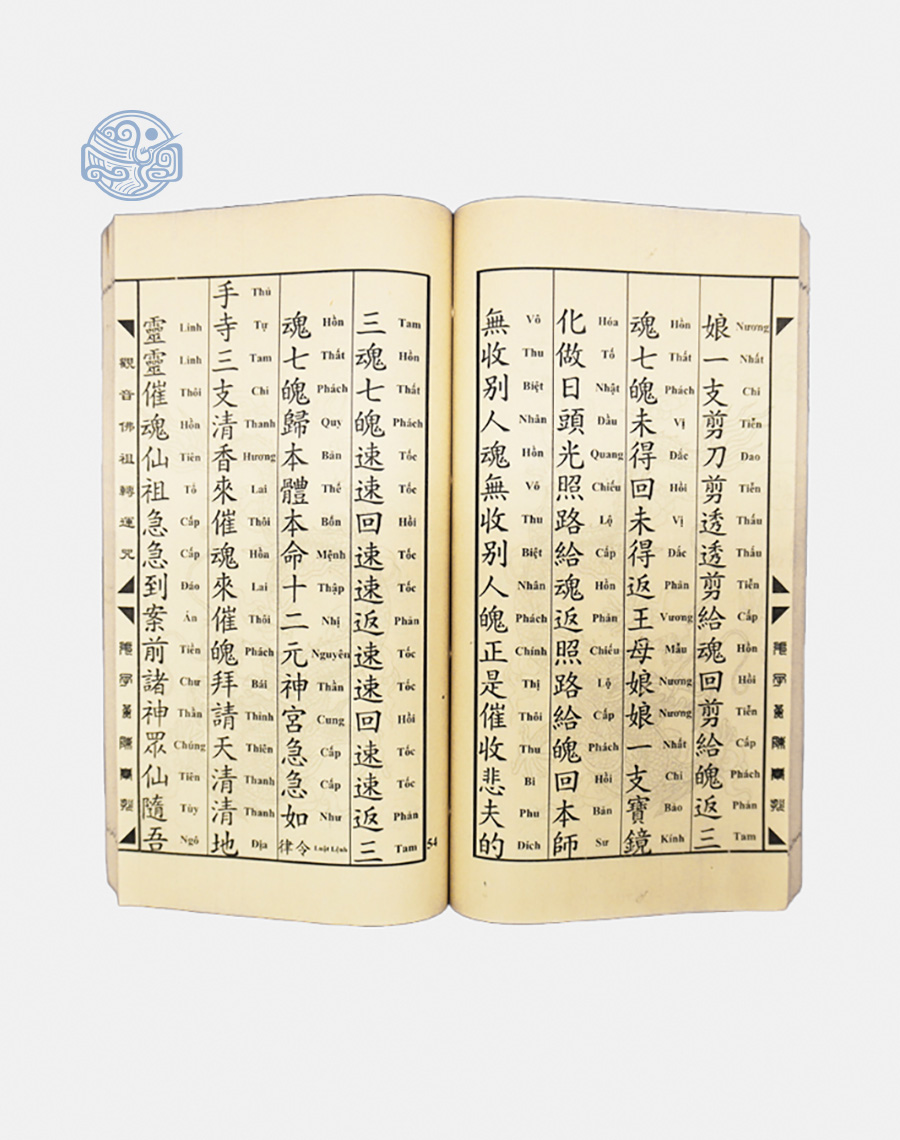 娘一支剪刀剪透透剪給魂回剪給魄返三
Nương Nhất Chi Tiễn Đao Tiễn Thấu Thấu Tiễn Cấp Hồn Hồi Tiễn Cấp Phách Phản Tam
魂七魄未得回未得返王母娘娘一支寶鏡
Hồn Thất Phách Vị Đắc Hồi Vị Đắc Phản Vương Mẫu Nương Nương Nhất Chi Bảo Kính
化做日頭光照路給魂返照路給魄回本師
Hóa Tố Nhật Đầu Quang Chiếu Lộ Cấp Hồn Phản Chiếu Lộ Cấp Phách Hồi Bản Sư
無收別人魂無收別人魄正是催收悲夫的
Vô Thu Biệt Nhân Hồn Vô Thu Biệt Nhân Phách Chính Thị Thôi Thu Bi Phu Đích
54
三魂七魄速速回速速返速速回速速返三
Tam Hồn Thất Phách Tốc Tốc Hồi Tốc Tốc Phản Tốc Tốc Hồi Tốc Tốc Phản Tam
魂七魄歸本體本命十二元神宮急急如律令
Hồn Thất Phách Quy Bản Thể Bổn Mệnh Thập Nhị Nguyên Thần Cung Cấp Cấp Như Luật Lệnh
手寺三支清香來催魂來催魄拜請天清清地
Thủ Tự Tam Chi Thanh Hương Lai Thôi Hồn Lai Thôi Phách Bái Thỉnh Thiên Thanh Thanh Địa
靈靈催魂仙祖急急到案前諸神眾仙隨吾
Linh Linh Thôi Hồn Tiên Tổ Cấp Cấp Đáo Án Tiền Chư Thần Chúng Tiên Tùy Ngô
觀音佛祖轉運咒